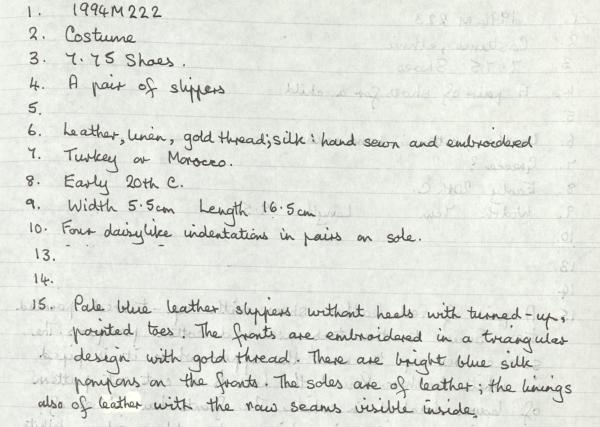 1. 1994 M 222
2. Costume
3. 7.75 Shoes.
4. A pair of slippers
5.
6. Leather, linen, gold thread; silk: hand sewn and embroidered
7. Turkey or Morocco.
8. Early 20th C.
9. Width 5.5cm Length 16.5cm
10. Four daisylike indentations in pairs on sole.
13.
14.
15. Pale blue leather slippers without heels with turned-up,
pointed toes. The fronts are embroidered in a triangular
design with gold thread. There are bright blue silk
pompons on the fronts. The soles are of leather; the linings
also of leather with the raw seams visible inside.